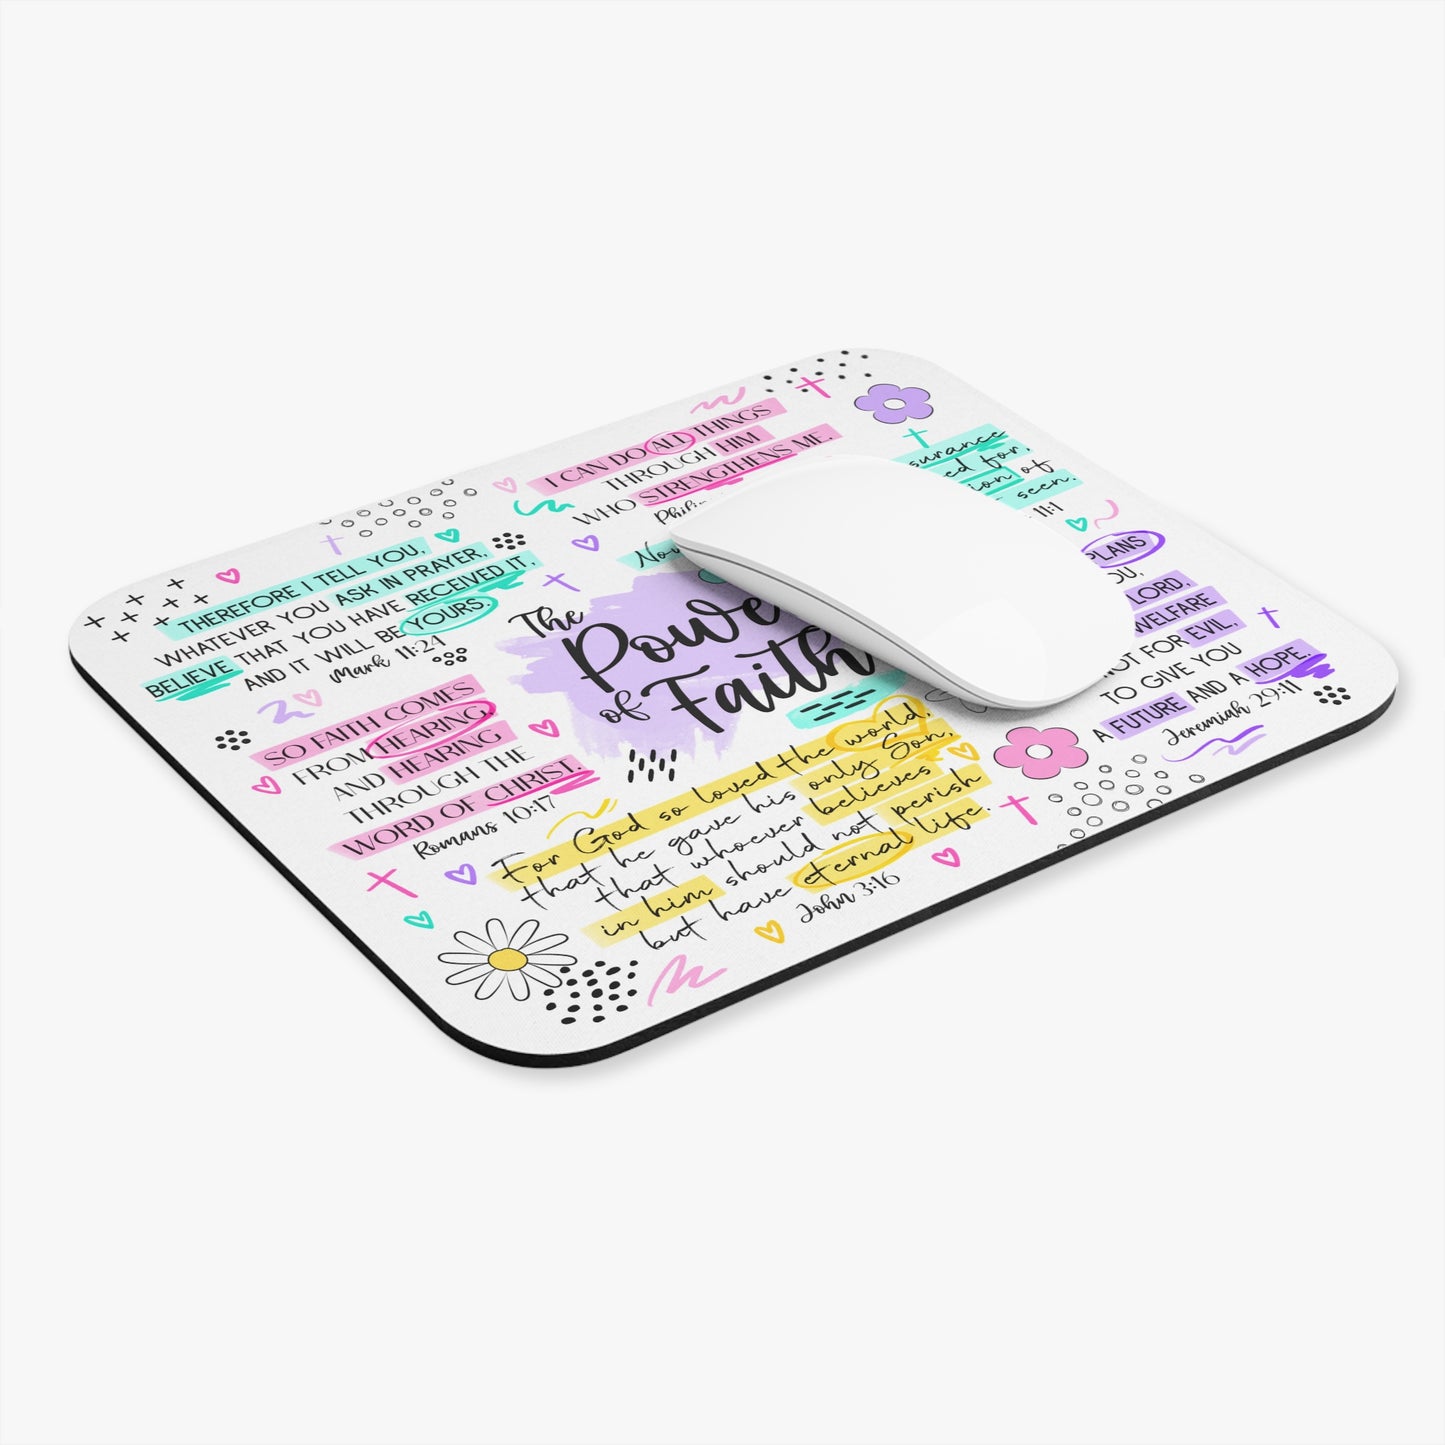 I CAN DO ALL THINGS
THROUGH HIM
WHO STRENGTHENS ME.
THEREFORE I TELL YOU,
WHATEVER YOU ASK IN PRAYER,
BELIEVE THAT YOU HAVE RECEIVED IT,
AND IT WILL BE YOURS.
Mark 11:24
The
of Faith
for,
of
seen.
11:1
PLANS
LORD,
WELFARE
NOT FOR EVIL,
TO GIVE YOU
A FUTURE AND A HOPE.
Jeremiah 29:11
SO FAITH COMES
FROM HEARING,
AND HEARING
THROUGH THE
WORD OF CHRIST.
Romans 10:17
For God so loved the world,
that he gave his only Son,
that whoever believes
in him should not perish
but have eternal life.
John 3:16